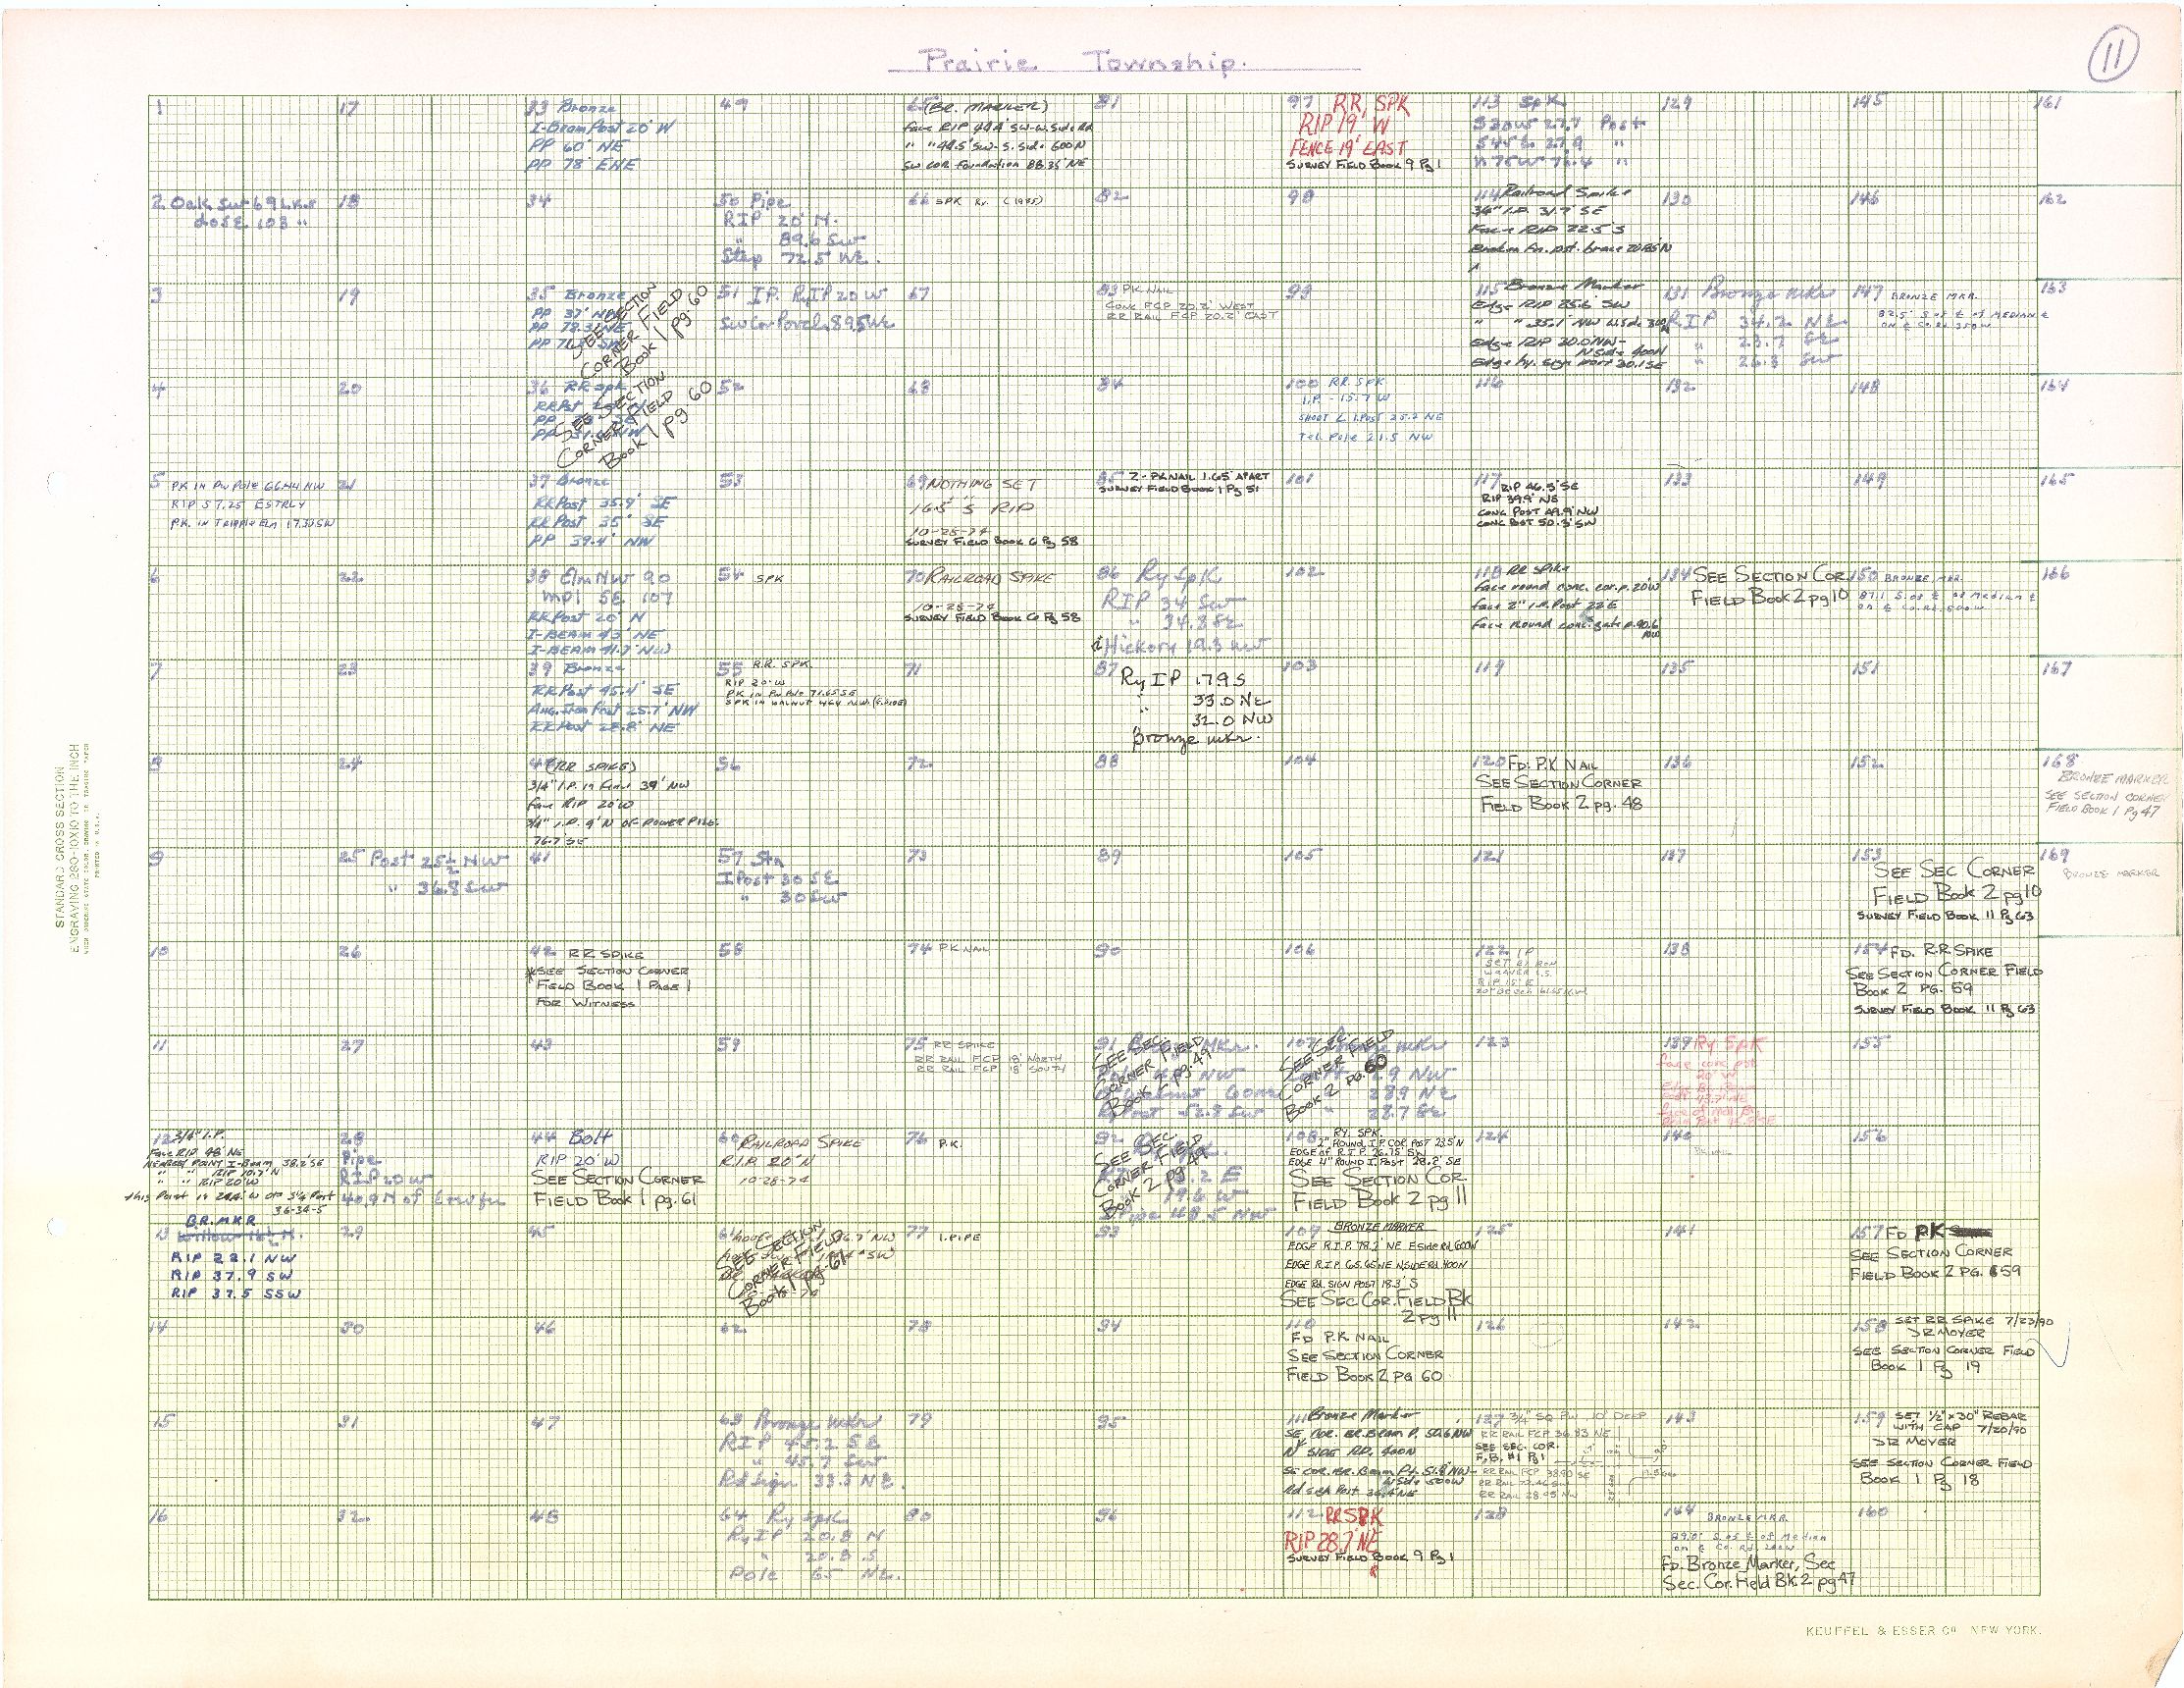 11
Prairie Township.
1
2 Oak SW 69 Lks
do SE 103 "
3
4
5 PK IN PW POLE 66.44 NW
RIP 57.25 ESTRLY
PK. IN TRIPPLE ELM 17.30 SW
6
7
8
9
10
11
12 3/4" I.P.
Face RIP 48' NE
NEAREST POINT I-BEAM 38.2' SE
" " RIP 10.7' N
" " RIP 20' W
this Point is 24.4' W of 3/4 Post
36-34-5
BR. MKR
13
RIP 22.1 NW
RIP 37.9 SW
RIP 37.5 SSW
14
15
16
17
18
19
20
21
22
23
24
25 Post 25½ NW
" 36.8 SW
26
27
28
Pipe
RIP 20 W
40.9 N of
29
30
31
32
33 Bronze
I-Beam Post 20' W
PP 60' NE
PP 78' ENE
34
35 Bronze
PP 37'
PP 78.3' NE
SEE SECTION
CORNER FIELD
Book 1 pg. 60
36 RR spk
RR Post
SEE SECTION
CORNER FIELD
Book 1 pg 60
37 Bronze
RR Post 35.9' SE
RR Post 35' SE
PP 39.4' NW
38 Elm NW 90
Mpl SE 107
RR Post 20' N
I-BEAM 43' NE
I-BEAM 41.7' NW
39 Bronze
RR Post 45.4' SE
Ang. Iron Post 25.7' NW
RR Post 28.8' NE
(RR SPIKE)
3/4" I.P. in Fence 39' NW
Face RIP 20' W
3/4" I.P. 9' N OF POWER POLE
76.7' SE
41
42 RR SPIKE
*SEE SECTION CORNER
FIELD BOOK 1 PAGE 1
FOR WITNESS
43
44 Bolt
RIP 20' W
SEE SECTION CORNER
FIELD BOOK 1 pg. 61
45
46
47
48
49
50 Pipe
RIP 20' N.
" 89.6 SW
Step 72.5 NE.
51 I.P. RyIP 20 W
SW Cor Porch 89.5 NE
52
53
54 SPK
55 R.R. SPK.
RIP 20' W
PK IN PW POLE 71.65 SE
SPK IN WALNUT 46.4 N.W. (S. SIDE)
56
57 Stn
I Post 30 SE
" 30 SW
58
59
60 RAILROAD SPIKE
R.I.P. 20' N
10-28-74
61
SEE SECTION
CORNER FIELD
Book 1 pg. 61
62
63 Bronze Mkr
RIP 45.2 SE
" 45.7 SW
Rd sign 33.3 NE
64 Ry Spk
RyIP 20.8 N
" 20.8 S
Pole 65 NE.
65 (BR. MARKER)
Face RIP 44.4' SW-W. Side Rd
" " 44.5' SW-S. Side 600N
SW COR. Foundation 88.35' NE
66 SPK Ry. (1985)
67
68
69 NOTHING SET
16.5' S RIP
10-28-74
SURVEY FIELD BOOK 6 Pg 58
70 RAILROAD SPIKE
10-28-74
SURVEY FIELD BOOK 6 Pg 58
71
72
73
74 PK NAIL
75 RR SPIKE
RR RAIL FCP 18' NORTH
RR RAIL FCP 18' SOUTH
76 P.K.
77 I.PIPE
78
79
80
81
82
83 PK NAIL
CONC FCP 20.2' WEST
RR RAIL FCP 20.2' EAST
84
85 2-PK NAIL 1.65' APART
SURVEY FIELD BOOK 1 Pg 51
86 Ry Spk
RIP 34 SW
" 34.8 SE
12" Hickory 19.3 NW
87
Ry IP 17.9 S
" 33.0 NE
32.0 NW
Bronze Mkr.
88
89
90
91 Bronze Mkr.
SEE SEC.
CORNER FIELD
BOOK 2 pg. 49
92
SEE SEC.
CORNER FIELD
BOOK 2 pg 49
93
94
95
96
97 RR, SPK
RIP 19' W
FENCE 19' EAST
SURVEY FIELD BOOK 9 Pg 1
98
99
100 RR. SPK
I.P. - 15.7 W
SHORT L I.Post 25.2 NE
Tel. Pole 21.5 NW
101
102
103
104
105
106
107
SEE SEC.
CORNER FIELD
BOOK 2 pg. 60
28.9 NE
28.7 SE
108 RY. SPK.
2" ROUND I.P. COR. POST 23.5' N
EDGE of R.I.P. 26.75' SW
EDGE 4" ROUND I. POST 28.2' SE
SEE SECTION COR.
FIELD BOOK 2 pg 11
109 BRONZE MARKER
EDGE R.I.P. 78.2' NE E side Rd. 600W
EDGE R.I.P. 65.65 NE N SIDE Rd. 400N
EDGE Rd. SIGN POST 18.3' S
SEE SEC COR. FIELD BK
2 pg 11
110
FD P.K NAIL
SEE SECTION CORNER
FIELD BOOK 2 PG 60
111 Bronze Marker
SE COR. BR. Beam P. 50.6 NW
N SIDE RD. 400N
SE COR. BR. Beam Pt. 51.8' NW-
W. Side 500W
Rd Sign Post 36.4' NE
112 RR SPK
RIP 28.7' NE
SURVEY FIELD BOOK 9 Pg 1
113 SPK
S30W 27.7 Post
S45E 27.9 "
N75W 72.4 "
114 Railroad Spike
3/4" I.P. 31.7' SE
Face RIP 22.5' S
Broken fn. pst. brace 20.85' N
115 Bronze Marker
Edge RIP 25.6' SW
" " 35.1' NW W. Side 300
Edge RIP 20.0 NW-
N Side 400N
Edge hy. sign post 30.1 SE
116
117
RIP 46.5' SE
RIP 39.9' NE
CONC POST 49.9' NW
CONC POST 50.3' SW
118 RR Spike
Face round conc. cor. p. 20W
face 2" I.P. Post 22 E
Face Round conc. gate p. 90.6
NW
119
120 FD. P.K NAIL
SEE SECTION CORNER
FIELD BOOK 2 pg. 48
121
122 IP
SET BY RON
WARNER L.S.
RIP 15' E
123
124
125
126
127 3/4" SQ PIN 10" DEEP
RR RAIL FCP 36.83 NE
SEE SEC. COR.
F.B. #1 Pg 1
RR RAIL FCP 38.90 SE
RR RAIL 73.46 SW
RR RAIL 28.95 NW
128
129
130
131 Bronze Mkr
RIP 34.2 NE
" 23.7 SE
" 26.3 SW
132
133
134 SEE SECTION COR.
FIELD BOOK 2 pg 10
135
136
137
138
139 Ry SPK
face conc. pst
20' W
140
141
142
143
144 BRONZE MKR.
29.0' S. of ℄ of Median
on ℄ Co. Rd. 200W
Fd. Bronze Marker, See
Sec. Cor. Field Bk. 2 pg 47
145
146
147 BRONZE MKR.
82.5' S of ℄ of MEDIAN &
ON ℄ CO. RD. 350W
148
149
150 BRONZE MKR.
87.1 S. of ℄ of Median &
on ℄ Co. Rd. 500W
151
152
153
SEE SEC CORNER
FIELD BOOK 2 pg 10
SURVEY FIELD BOOK 11 Pg 63
154 FD. R.R. SPIKE
SEE SECTION CORNER FIELD
BOOK 2 PG. 59
SURVEY FIELD BOOK 11 Pg 63
155
156
157 FD PK
SEE SECTION CORNER
FIELD BOOK 2 PG. 59
158 SET RR SPIKE 7/23/90
DR MOYER
SEE SECTION CORNER FIELD
BOOK 1 Pg 19
159 SET 1/2" x 30" REBAR
WITH CAP 7/20/90
DR MOYER
SEE SECTION CORNER FIELD
BOOK 1 Pg 18
160
161
162
163
164
165
166
167
168
BRONZE MARKER
SEE SECTION CORNER
FIELD BOOK 1 Pg 47
169
BRONZE MARKER
STANDARD CROSS SECTION
ENGRAVING 2280-10X10 TO THE INCH
KEUFFEL & ESSER CO. NEW YORK.